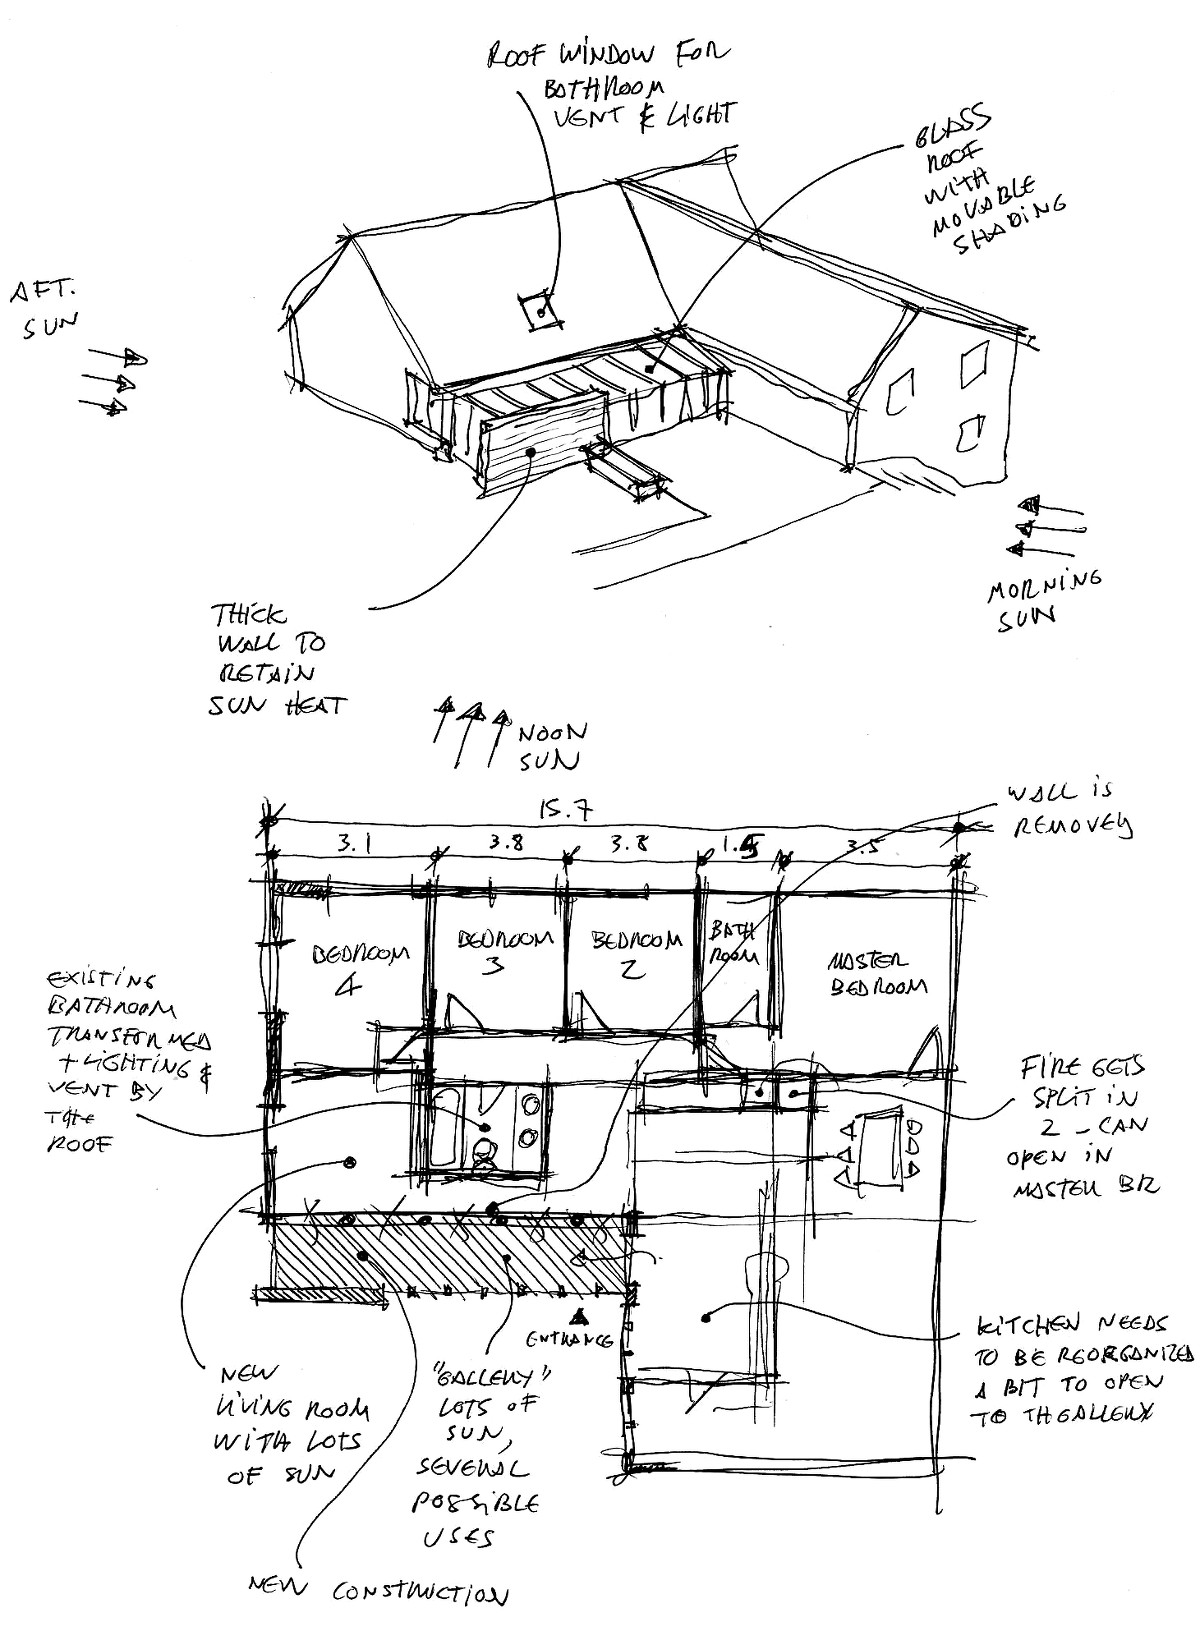 ROOF WINDOW FOR
BATHROOM
VENT & LIGHT
GLASS
ROOF
WITH
MOVABLE
SHADING
AFT.
SUN
MORNING
SUN
THICK
WALL TO
RETAIN
SUN HEAT
NOON
SUN
WALL IS
REMOVED
15.7
3.1
3.8
3.8
3.5
BEDROOM
4
BEDROOM
3
BEDROOM
2
BATH
ROOM
MASTER
BEDROOM
EXISTING
BATHROOM
TRANSFORMED
+ LIGHTING &
VENT BY
THE
ROOF
FIRE GETS
SPLIT IN
2 - CAN
OPEN IN
MASTER BR
ENTRANCE
KITCHEN NEEDS
TO BE REORGANIZED
A BIT TO OPEN
TO THGALLERY
NEW
LIVING ROOM
WITH LOTS
OF SUN
"GALLERY"
LOTS OF
SUN,
SEVERAL
POSSIBLE
USES
NEW CONSTRUCTION